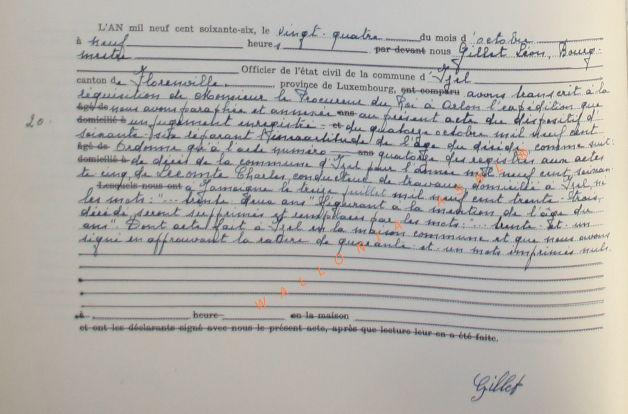 L'AN mil neuf cent soixante-six, le vingt-quatre du mois d'octobre
à neuf heures par devant nous Gillet Léon, Bourg-
mestre
Officier de l'état civil de la commune d'Izel
canton de Florenville, province de Luxembourg, ont comparu avons transcrit à la
réquisition de Monsieur le Procureur du Roi à Arlon l'expédition que
âgé de nous avons paraphée et annexée ans au présent acte du dispositif d-
domicilié à un jugement enregistré et du quatorze octobre mil neuf cent
20.
soixante-six réparant l'inexactitude de l'âge du décédé comme suit:
âgé de Ordonne qu'à l'acte numéro ans quatorze des registres aux actes
domicilié à de décès de la commune d'Izel pour l'année mil neuf cent soixan-
te cinq de Lecomte Charles, conducteur de travaux, domicilié à Izel, né
Lesquels nous ont à Jamoigne le treize juillet mil neuf cent trente-trois,
les mots: "... trente deux ans" figurant à la mention de l'âge du
décédé, seront supprimés et remplacés par les mots: "... trente et un
ans". Dont acte fait à Izel en la maison commune et que nous avons
signé en approuvant la rature de quarante et un mots imprimés nuls.
WALLONIA ASBL
à heure en la maison
et ont les déclarants signé avec nous le présent acte, après que lecture leur en a été faite.
Gillet